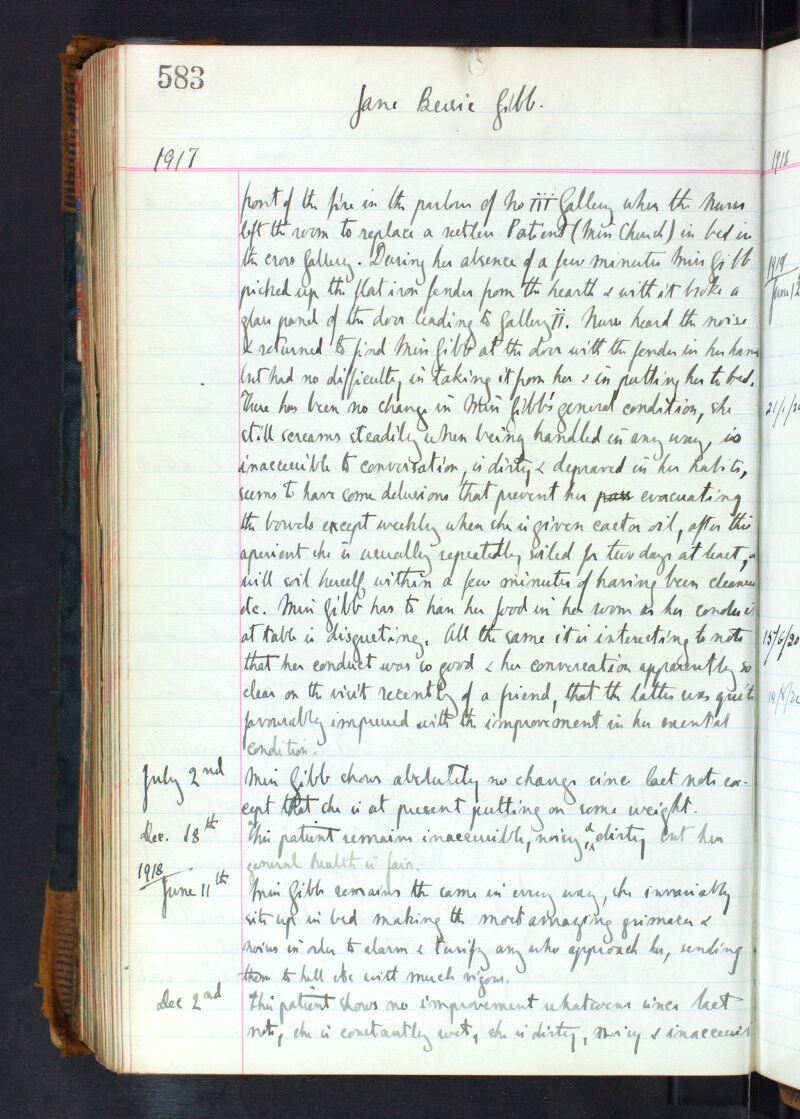 583
Jane Bessie Gibb.
1917
front of the fire in the parlour of No III Gallery when the Nurse
left the room to replace a restless Patient (Miss Church) in bed in
the cross Gallery. During her absence of a few minutes Miss Gibb
picked up the flat iron fender from the hearth & with it broke a
glass panel of the door leading to Gallery II. Nurse heard the noise
& returned to find Miss Gibb at the door with the fender in her hand
but had no difficulty in taking it from her & in putting her to bed.
There has been no change in Miss Gibb's general condition, she
still screams steadily when being handled in any way, is
inaccessible to conversation, is dirty & depraved in her habits,
seems to have some delusions that prevent her pass evacuating
the bowels except weekly when she is given castor oil, after this
aperient she is usually repeatedly soiled for two days at least, &
will soil herself within a few minutes of having been cleaned
etc. Miss Gibb has to have her food in her room as her conduct
at table is disgusting. All the same it is interesting to note
that her conduct was so good & her conversation apparently so
clear on the visit recently of a friend, that the latter was quite
favourably impressed with the improvement in her mental
condition.
July 2nd Miss Gibb shows absolutely no change since last note ex-
cept that she is at present putting on some weight.
Dec. 18th This patient remains inaccessible, noisy & dirty but her
general health is fair.
1918
June 11th Miss Gibb remains the same in every way, she invariably
sits up in bed making the most amazing grimaces &
noises in order to alarm & terrify any who approach her, sending
them to hell etc with much vigour.
Dec 2nd This patient shows no improvement whatsoever since last
note, she is constantly wet, she is dirty, noisy & inaccessib
1918
1919
June 12
21/1/20
15/6/20